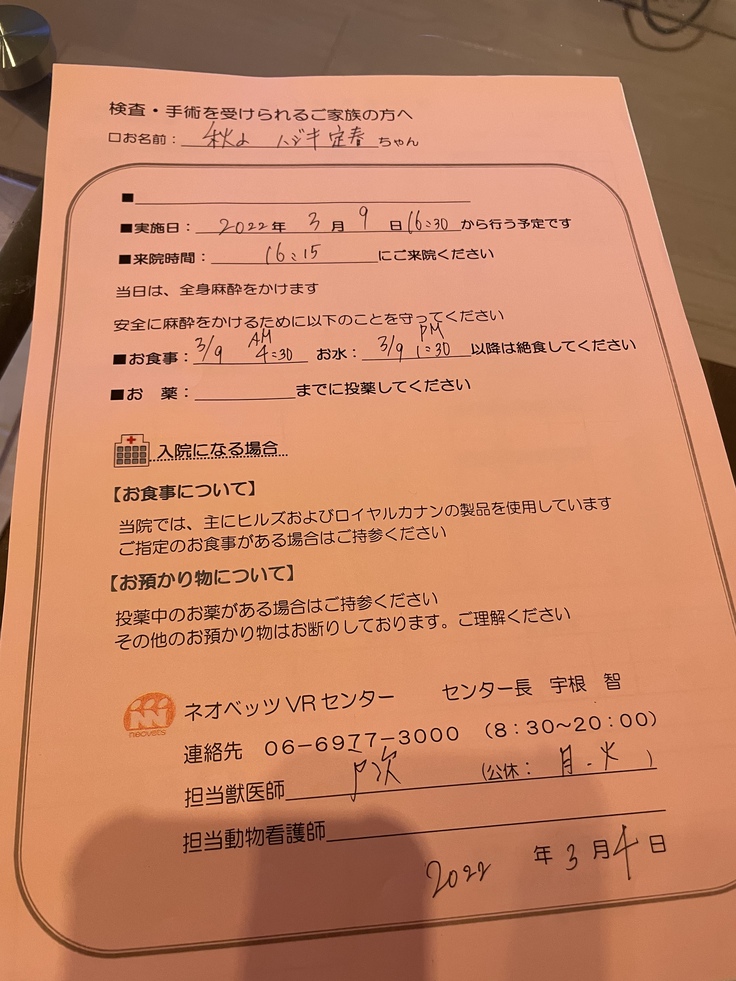 検査・手術を受けられるご家族の方へ
口お名前： 秋山 ハジキ定春 ちゃん
■
■実施日： 2022年 3月 9日 16:30 から行う予定です
■来院時間： 16:15 にご来院ください
当日は、全身麻酔をかけます
安全に麻酔をかけるために以下のことを守ってください
■お食事： 3/9 AM 4:30 お水： 3/9 PM 1:30 以降は絶食してください
■お 薬： までに投薬してください
入院になる場合
【お食事について】
当院では、主にヒルズおよびロイヤルカナンの製品を使用しています
ご指定のお食事がある場合はご持参ください
【お預かり物について】
投薬中のお薬がある場合はご持参ください
その他のお預かり物はお断りしております。ご理解ください
neovets
ネオベッツVRセンター センター長 宇根 智
連絡先 06-6977-3000 （8：30～20：00）
担当獣医師 戸次 （公休： 月・火 ）
担当動物看護師
2022 年 3 月 4 日